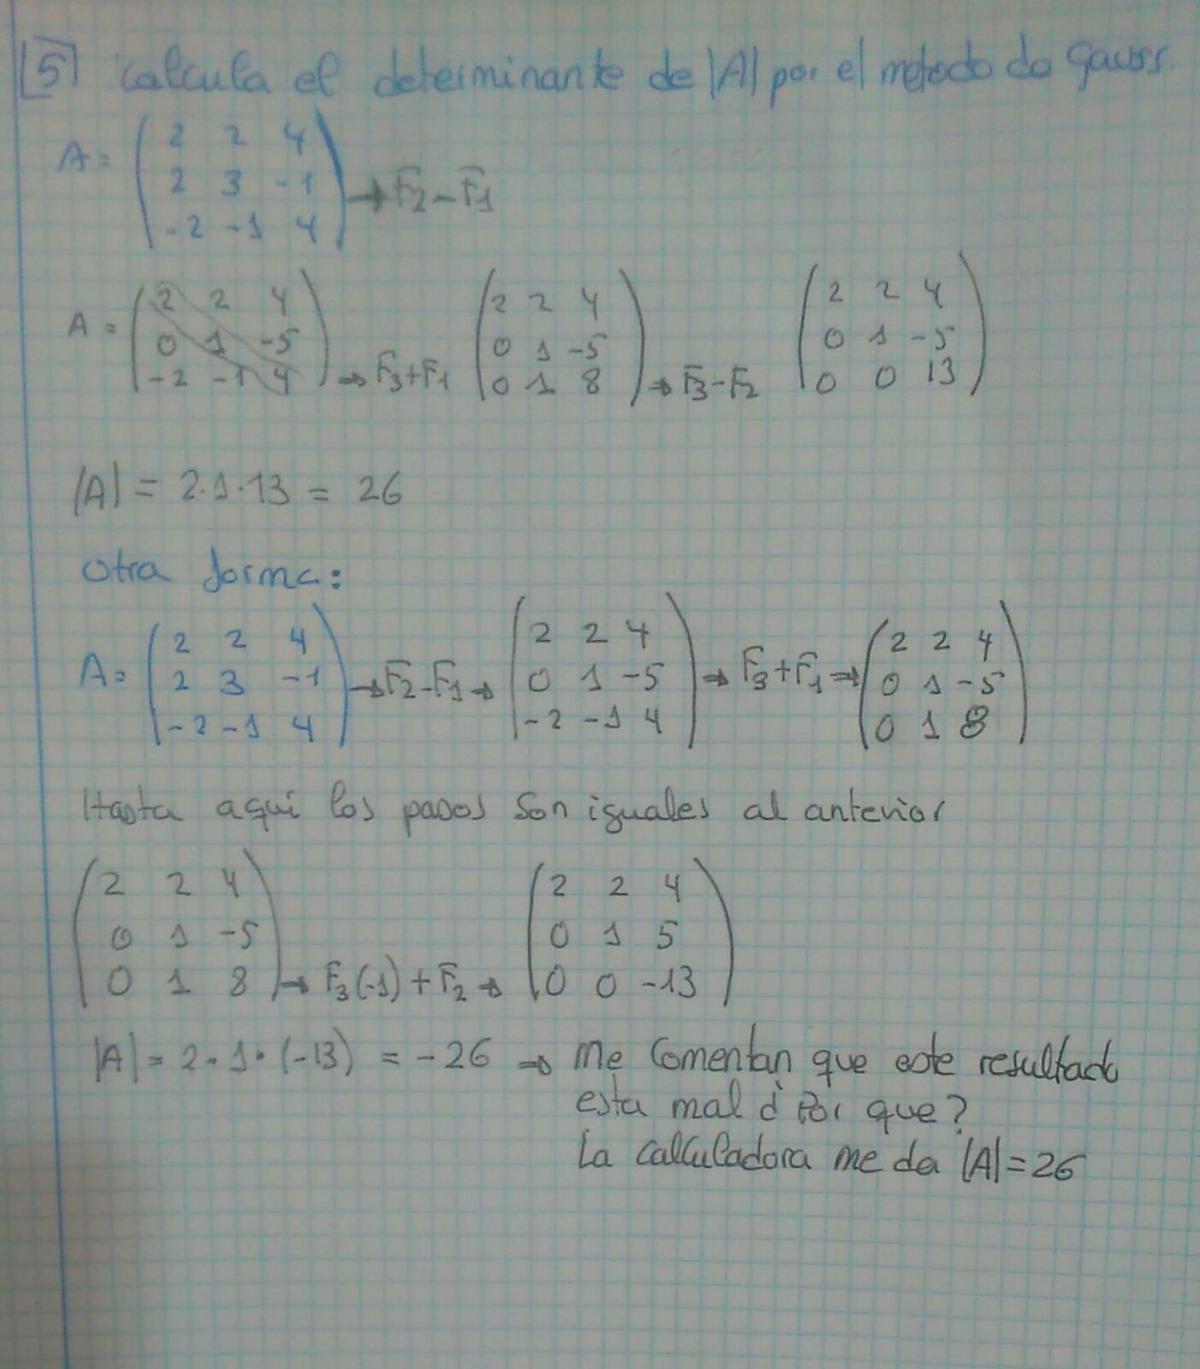 5 calcula el determinante de |A| por el metodo de gauss.
A= (2 2 4
2 3 -1 → F2-F1
-2 -1 4)
A = (2 2 4
0 1 -5
-2 -1 4) → F3+F1 (2 2 4
0 1 -5
0 1 8) → F3-F2 (2 2 4
0 1 -5
0 0 13)
|A| = 2·1·13 = 26
otra forma:
A= (2 2 4
2 3 -1
-2 -1 4) → F2-F1 → (2 2 4
0 1 -5
-2 -1 4) → F3+F1 → (2 2 4
0 1 -5
0 1 8)
Hasta aqui los pasos son iguales al anterior
(2 2 4
0 1 -5
0 1 8) → F3(-1)+F2 → (2 2 4
0 1 5
0 0 -13)
|A| = 2·1·(-13) = -26 → Me comentan que este resultado
esta mal ¿Por que?
La calculadora me da |A|=26